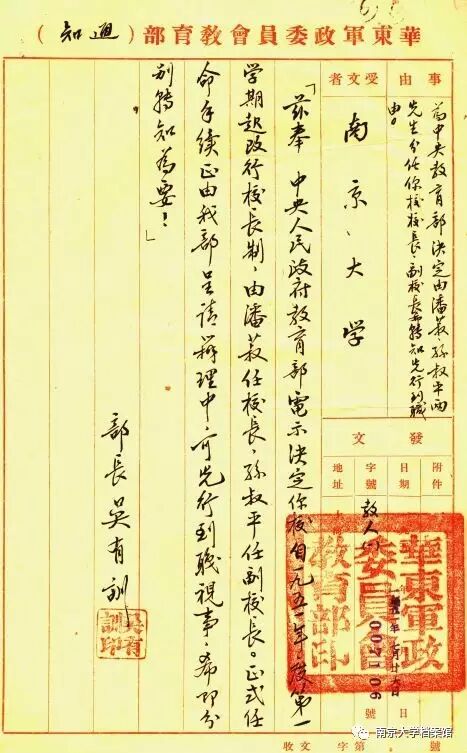 華東軍政委員會教育部（通知）
事由
為中央教育部決定由潘菽、孫叔平兩
先生分任你校校長、副校長希轉知先行到職
由。
受文者
南京大學
發文
附件
日期
字號
地址
教人
007106
號
華東軍政
委員會
教育部印
「茲奉 中央人民政府教育部電示決定你校自一九五一年度第一
學期起改行校長制，由潘菽任校長，孫叔平任副校長。正式任
命手續正由我部呈請辦理中，可先行到職視事，希即分
別轉知為要！」
部長吳有訓
吳有訓印
收文 字第 號
南京大学档案馆